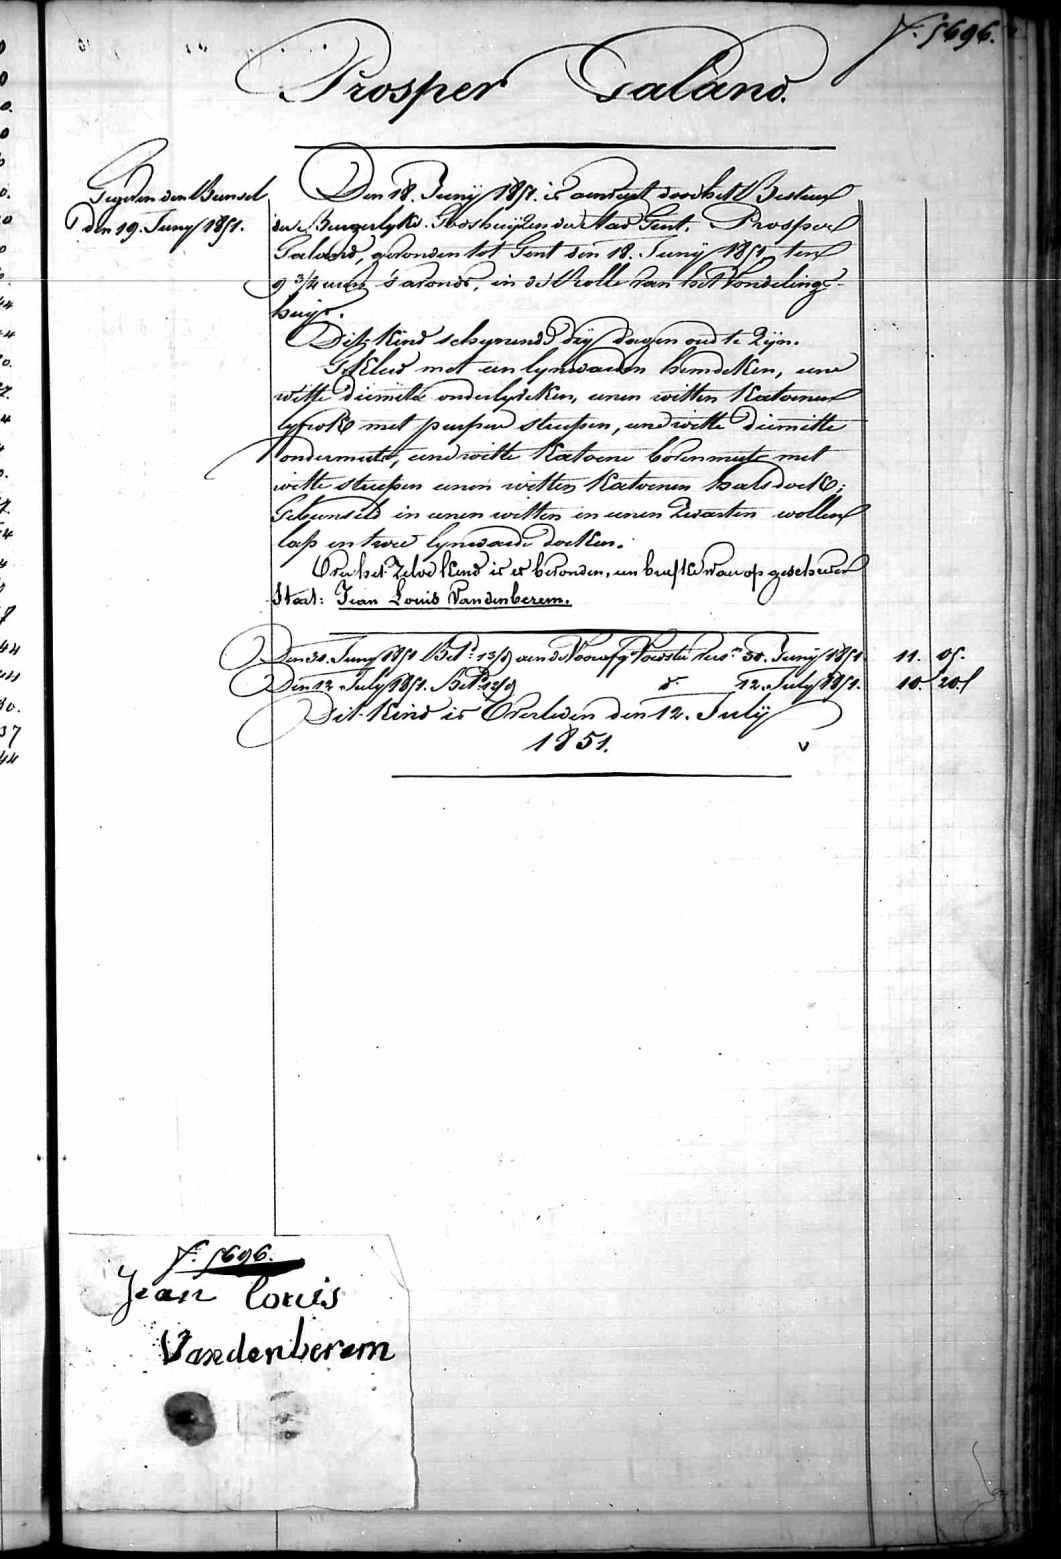 F. 5696.
Prosper Galand.
Gegeven den Bunsel
den 19. Juny 1851.
Den 18. Junij 1851. is aenveert door het Bestier
der Burgerlyke Godshuijzen der Stad Gent, Prosper
Galand, gevonden tot Gent den 18. Junij 1851, ten
9 3/4 uren s'avonds, in de Rolle van het Vondeling-
huijs.
Dit Kind schynende dry dagen oud te Zijn.
Gekleed met een lynwaden hemdeken, eene
witte diemitte onderlyveken, eenen witten Katoenen
lyfrok met purper streepen, eene witte diemitte
ondermuts, eene witte Katoene bovenmuts met
witte streepen eenen witten Katoenen halsdoek;
Gebunseld in eenen witten en eenen Zwarten wollen
lap en twee lynwaede doeken.
Over het Zelve Kind is er bevonden, een briefke waer op geschreven
Staat: Jean Louis Vandenberem.
Den 30. Juny 1851 Bet. 13/9 aen de Voorsz. Voedster 30. Junij 1851 11. 05.
Den 12 July 1851. Bet. 12/9 do. 12. July 1851. 10. 20
Dit Kind is Overleden den 12. Julij
1851. v
F. 5696.
Jean Louis
Vandenberem